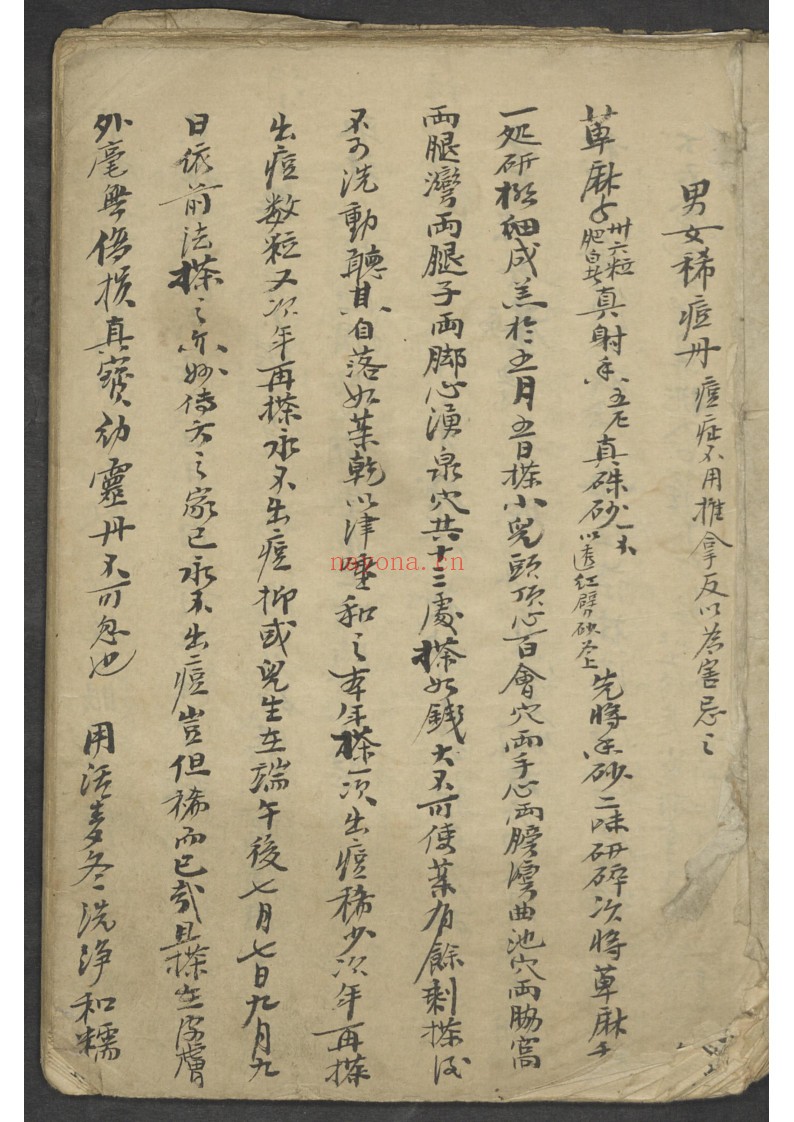 男女稀痘丹 痘症不用推拿反以為害忌之
草麻子卅六粒肥白真射香五厘真硃砂一錢以透紅劈砂為上先將香砂二味研碎次將草麻子
一処研極細成羔於五月五日搽小兒頭頂心百會穴両手心両膀灣曲池穴両脇窩
両腿灣両腿子両脚心湧泉穴共十三處搽如錢大不可使葉有餘剩搽後
不可洗動聽其自落如葉乾以津唾和之本年搽一次出痘稀少次年再搽
出痘数粒又次年再搽永不出痘抑或兒生在端午後七月七日九月九
日依前法搽之亦妙傳方之家已永不出痘豈但稀而已哉且搽在皮膚
外毫無傷損真寶幼靈丹不可忽也 用活麥冬洗淨和糯
nayona.cn